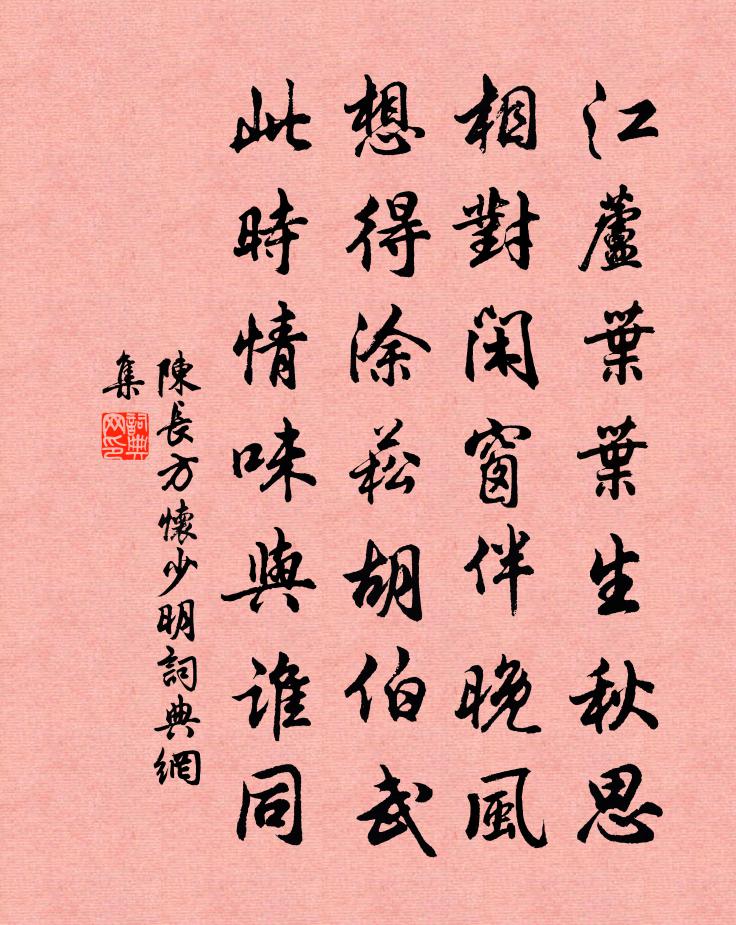 江蘆葉葉生秋思
相對閑窗伴晚風
想得涂菘胡伯武
此時情味與誰同
陳長方懷少明詞典網
集
詞典
网印